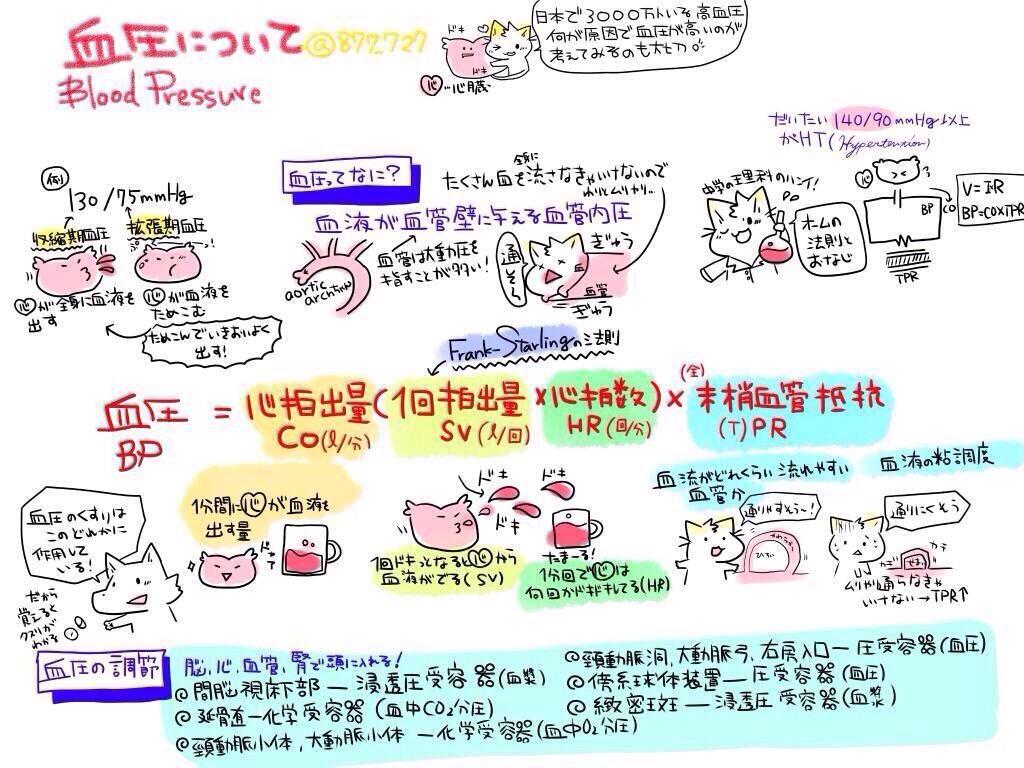 血圧について@872727
Blood Pressure
日本で3000万人いる高血圧
何が原因で血圧が高いのか
考えてみるのも大切
ドキ
心…心臓
だいたい140/90mmHg以上
がHT(Hypertension)
例
130/75mmHg
収縮期血圧
拡張期血圧
心が全身に血液を
出す
心が血液を
ためこむ
ためこんでいきおいよく
出す!
血圧ってなに?
全身に
たくさん血を流さなきゃいけないので
血液が血管壁に与える血管内圧
aortic
arch
血管は大動圧を
指すことが多い!
通るそ
ぎゅう
血
血管
ぎゅう
中学の理科のハンイ!
オームの
法則と
おなじ
心
CO
BP
TPR
V=IR
BP=CO×TPR
Frank-Starlingの法則
血圧=心拍出量(1回拍出量×心拍数)×(全)末梢血管抵抗
BP
CO(ℓ/分)
SV(ℓ/回)
HR(回/分)
(T)PR
血圧のくすりは
このどれかに
作用して
いる!
だから
覚えると
クスリが
わかる
1分間に心が血液を
出す量
ドキ
ドキ
1回ドキっとなると心から
血液がでる(SV)
たまーる!
1分回で心は
何回かドキドキしてる(HR)
血流がどれくらい流れやすい
血管か
血液の粘調度
通りやすそう〜!
ひろい
通りにくそう
カチ
カチ
せまい
ムリやり通らなきゃ
いけない→TPR↑
血圧の調節
脳,心,血管,腎で頭に入れる!
@間脳視床下部―浸透圧受容器(血漿)
@延髄―化学受容器(血中CO2分圧)
@頸動脈小体,大動脈小体―化学受容器(血中O2分圧)
@頸動脈洞,大動脈弓,右房入口―圧受容器(血圧)
@傍糸球体装置―圧受容器(血圧)
@緻密斑―浸透圧受容器(血漿)